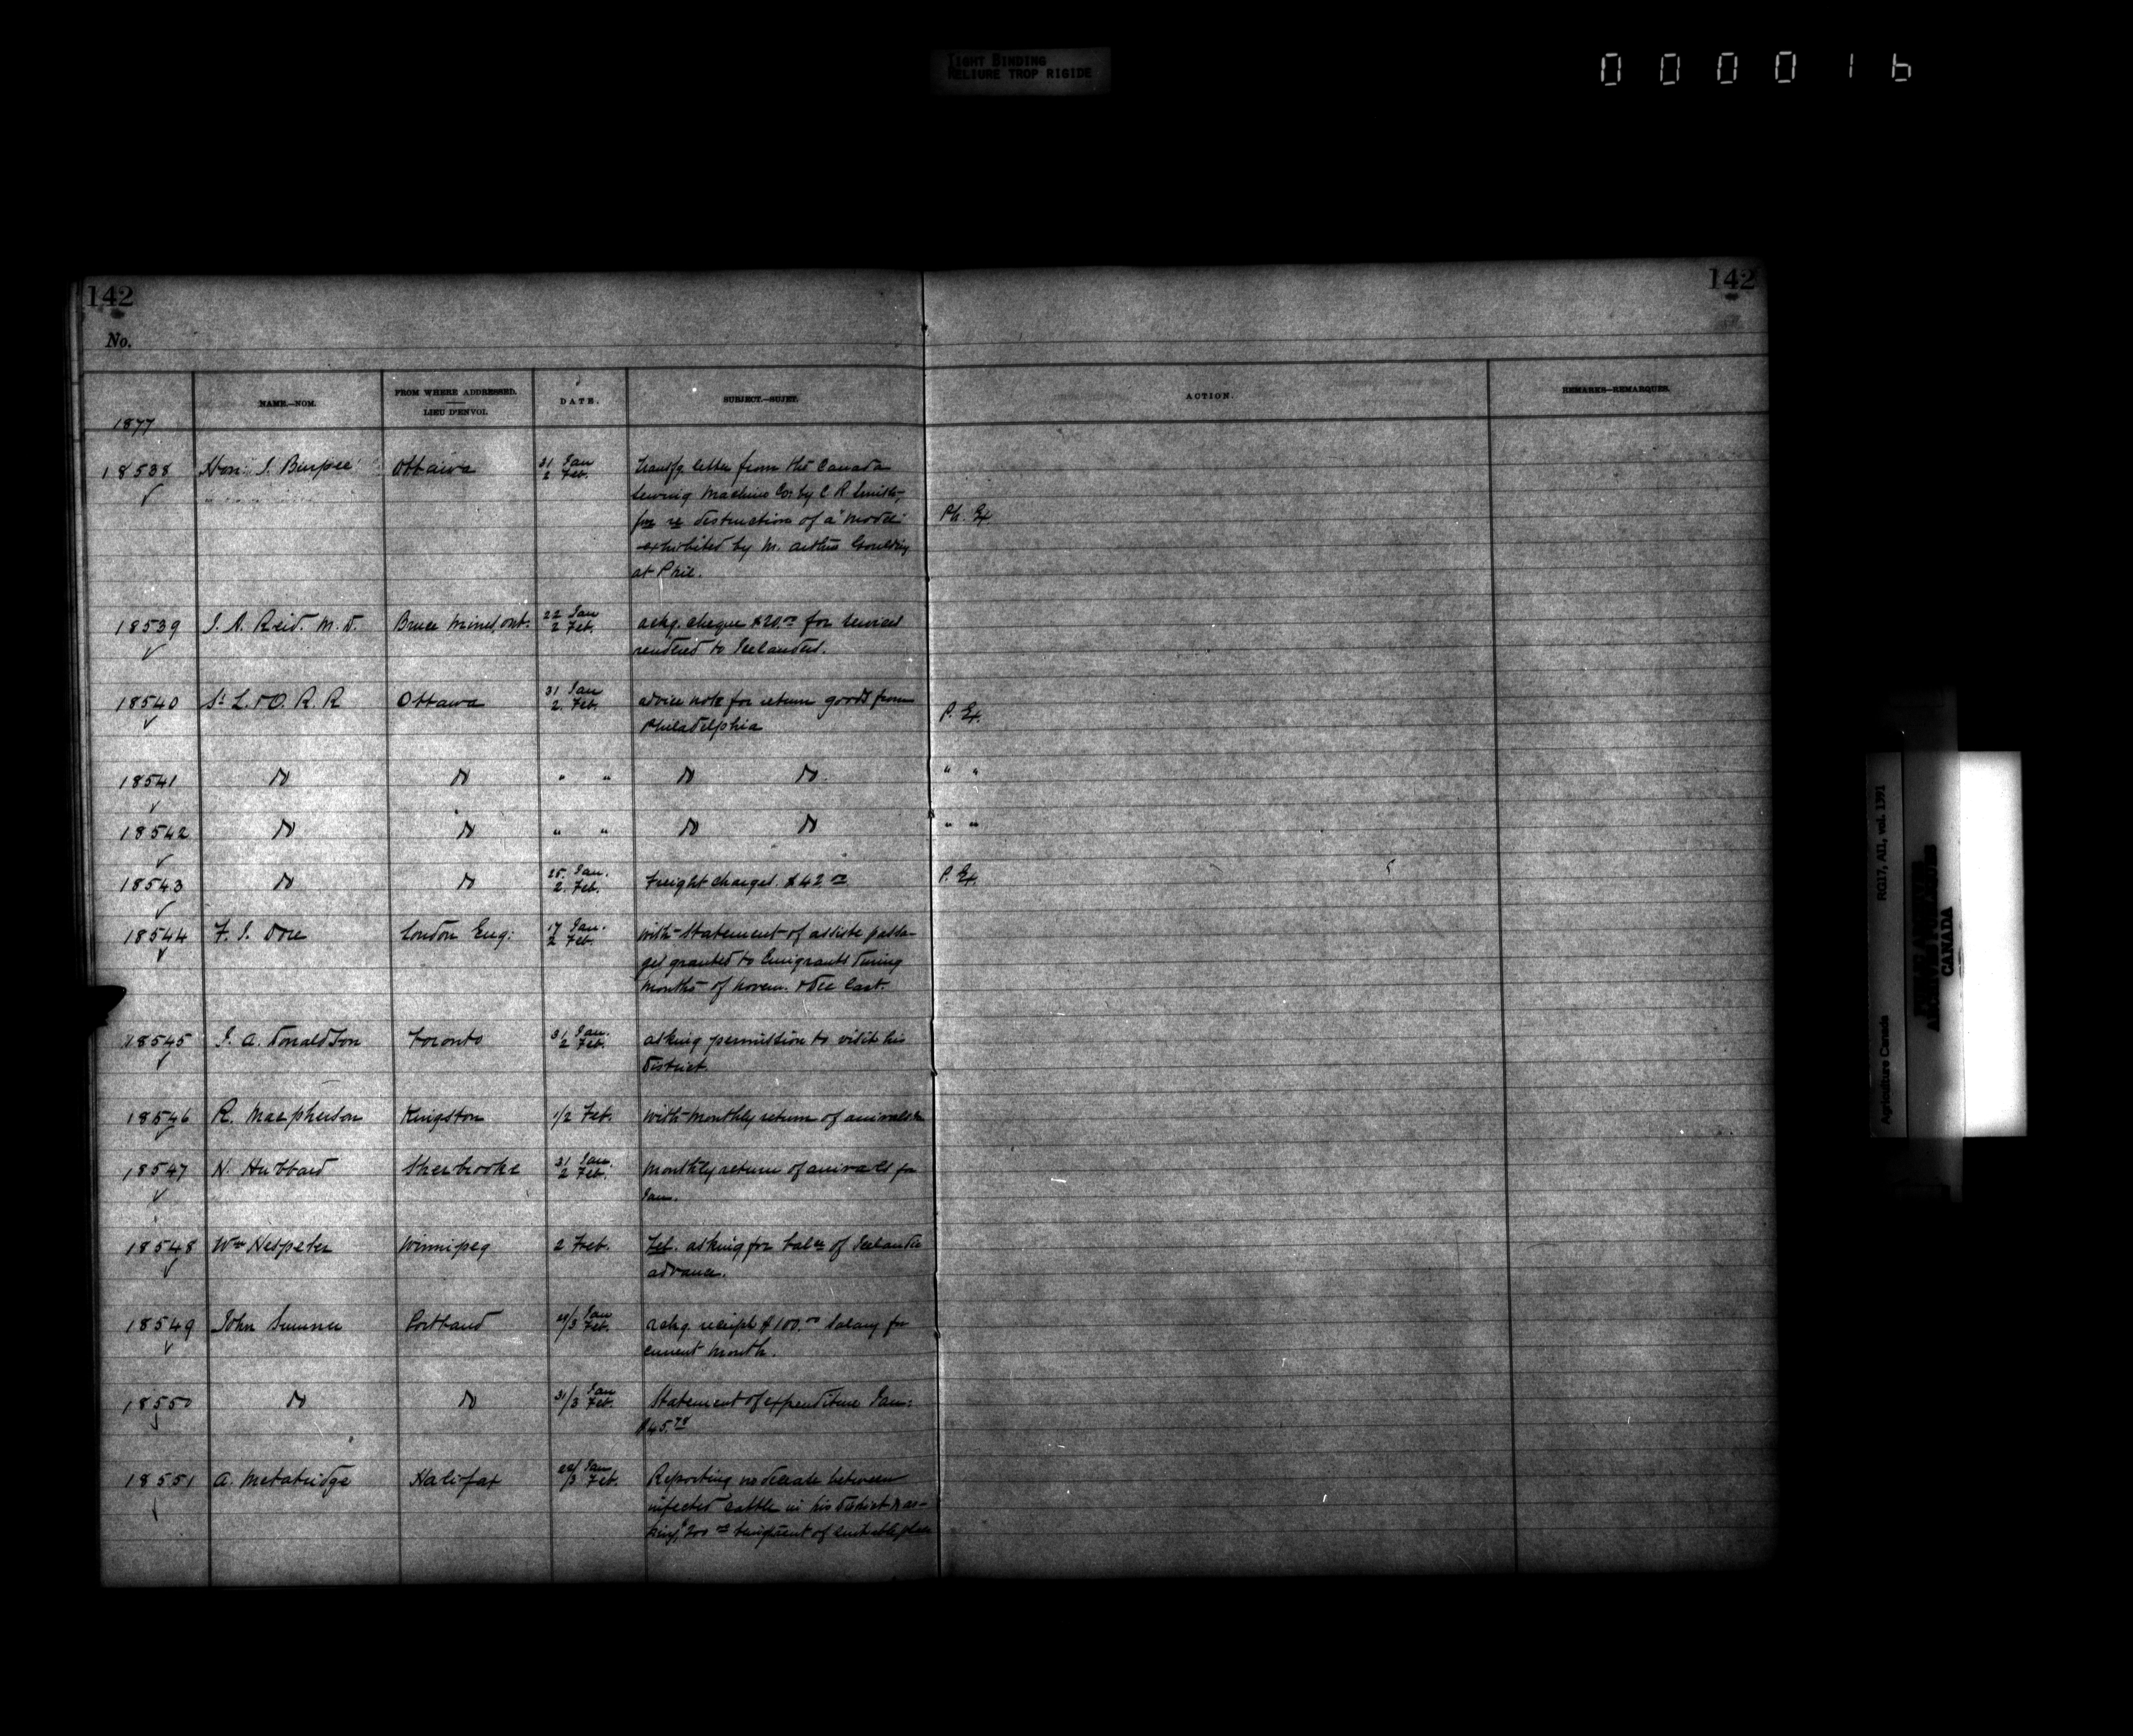 TIGHT BINDING
RELIURE TROP RIGIDE
0 0 0 0 1 6
142
142
No.
NAME.—NOM.
FROM WHERE ADDRESSED.
LIEU D'ENVOI.
DATE.
SUBJECT.—SUJET.
ACTION.
REMARKS—REMARQUES.
1877
18538 Hon. I. Burpee Ottawa 31 Jan 2 Feb. transfg. letter from the Canada
Sewing Machine Co. by C R Smith
re destruction of a model Ph. Ex
exhibited by M. Arthur Goulding
at Phil.
18539 J. A. Reid. M. D. Bruce Mines, Ont. 22 Jan 2 Feb. ackg. cheque $20.00 for services
rendered to Icelanders.
18540 St L. & O. R. R Ottawa 31 Jan 2. Feb. advice note for return goods from P. Ex.
Philadelphia
18541 Do Do " " Do Do " "
18542 Do Do " " Do Do " "
18543 Do Do 25. Jan. 2. Feb. Freight charges. $42 P. Ex.
18544 F. J. Dore London Eng: 17 Jan. 2 Feb. with statement of assiste passa-
ges granted to Emigrants during
months of novem. & Dec last.
18545 J. A. Donaldson Toronto 31 Jan. 2 Feb. asking permission to visit his
District
18546 R. Macpherson Kingston 1/2 Feb. with monthly return of arrivals
18547 H. Hubbard Sherbrooke 31 Jan. 2 Feb. monthly return of arrivals for
Jan.
18548 Wm Hespeler Winnipeg 2 Feb. Tel. asking for balce of Icelandic
advance.
18549 John Sumner Portland 29/3 Jan Feb. ackg. receipt $100.00 Salary for
current month.
18550 Do Do 31/3 Jan Feb. Statement of expenditure Jan:
$45.
18551 A. McFatridge Halifax /3 Jan Feb. Reporting no disease between
infected cattle in his District & as-
king $200
RG17, AII, vol. 1391
Agriculture Canada
PUBLIC ARCHIVES
ARCHIVES PUBLIQUES
CANADA